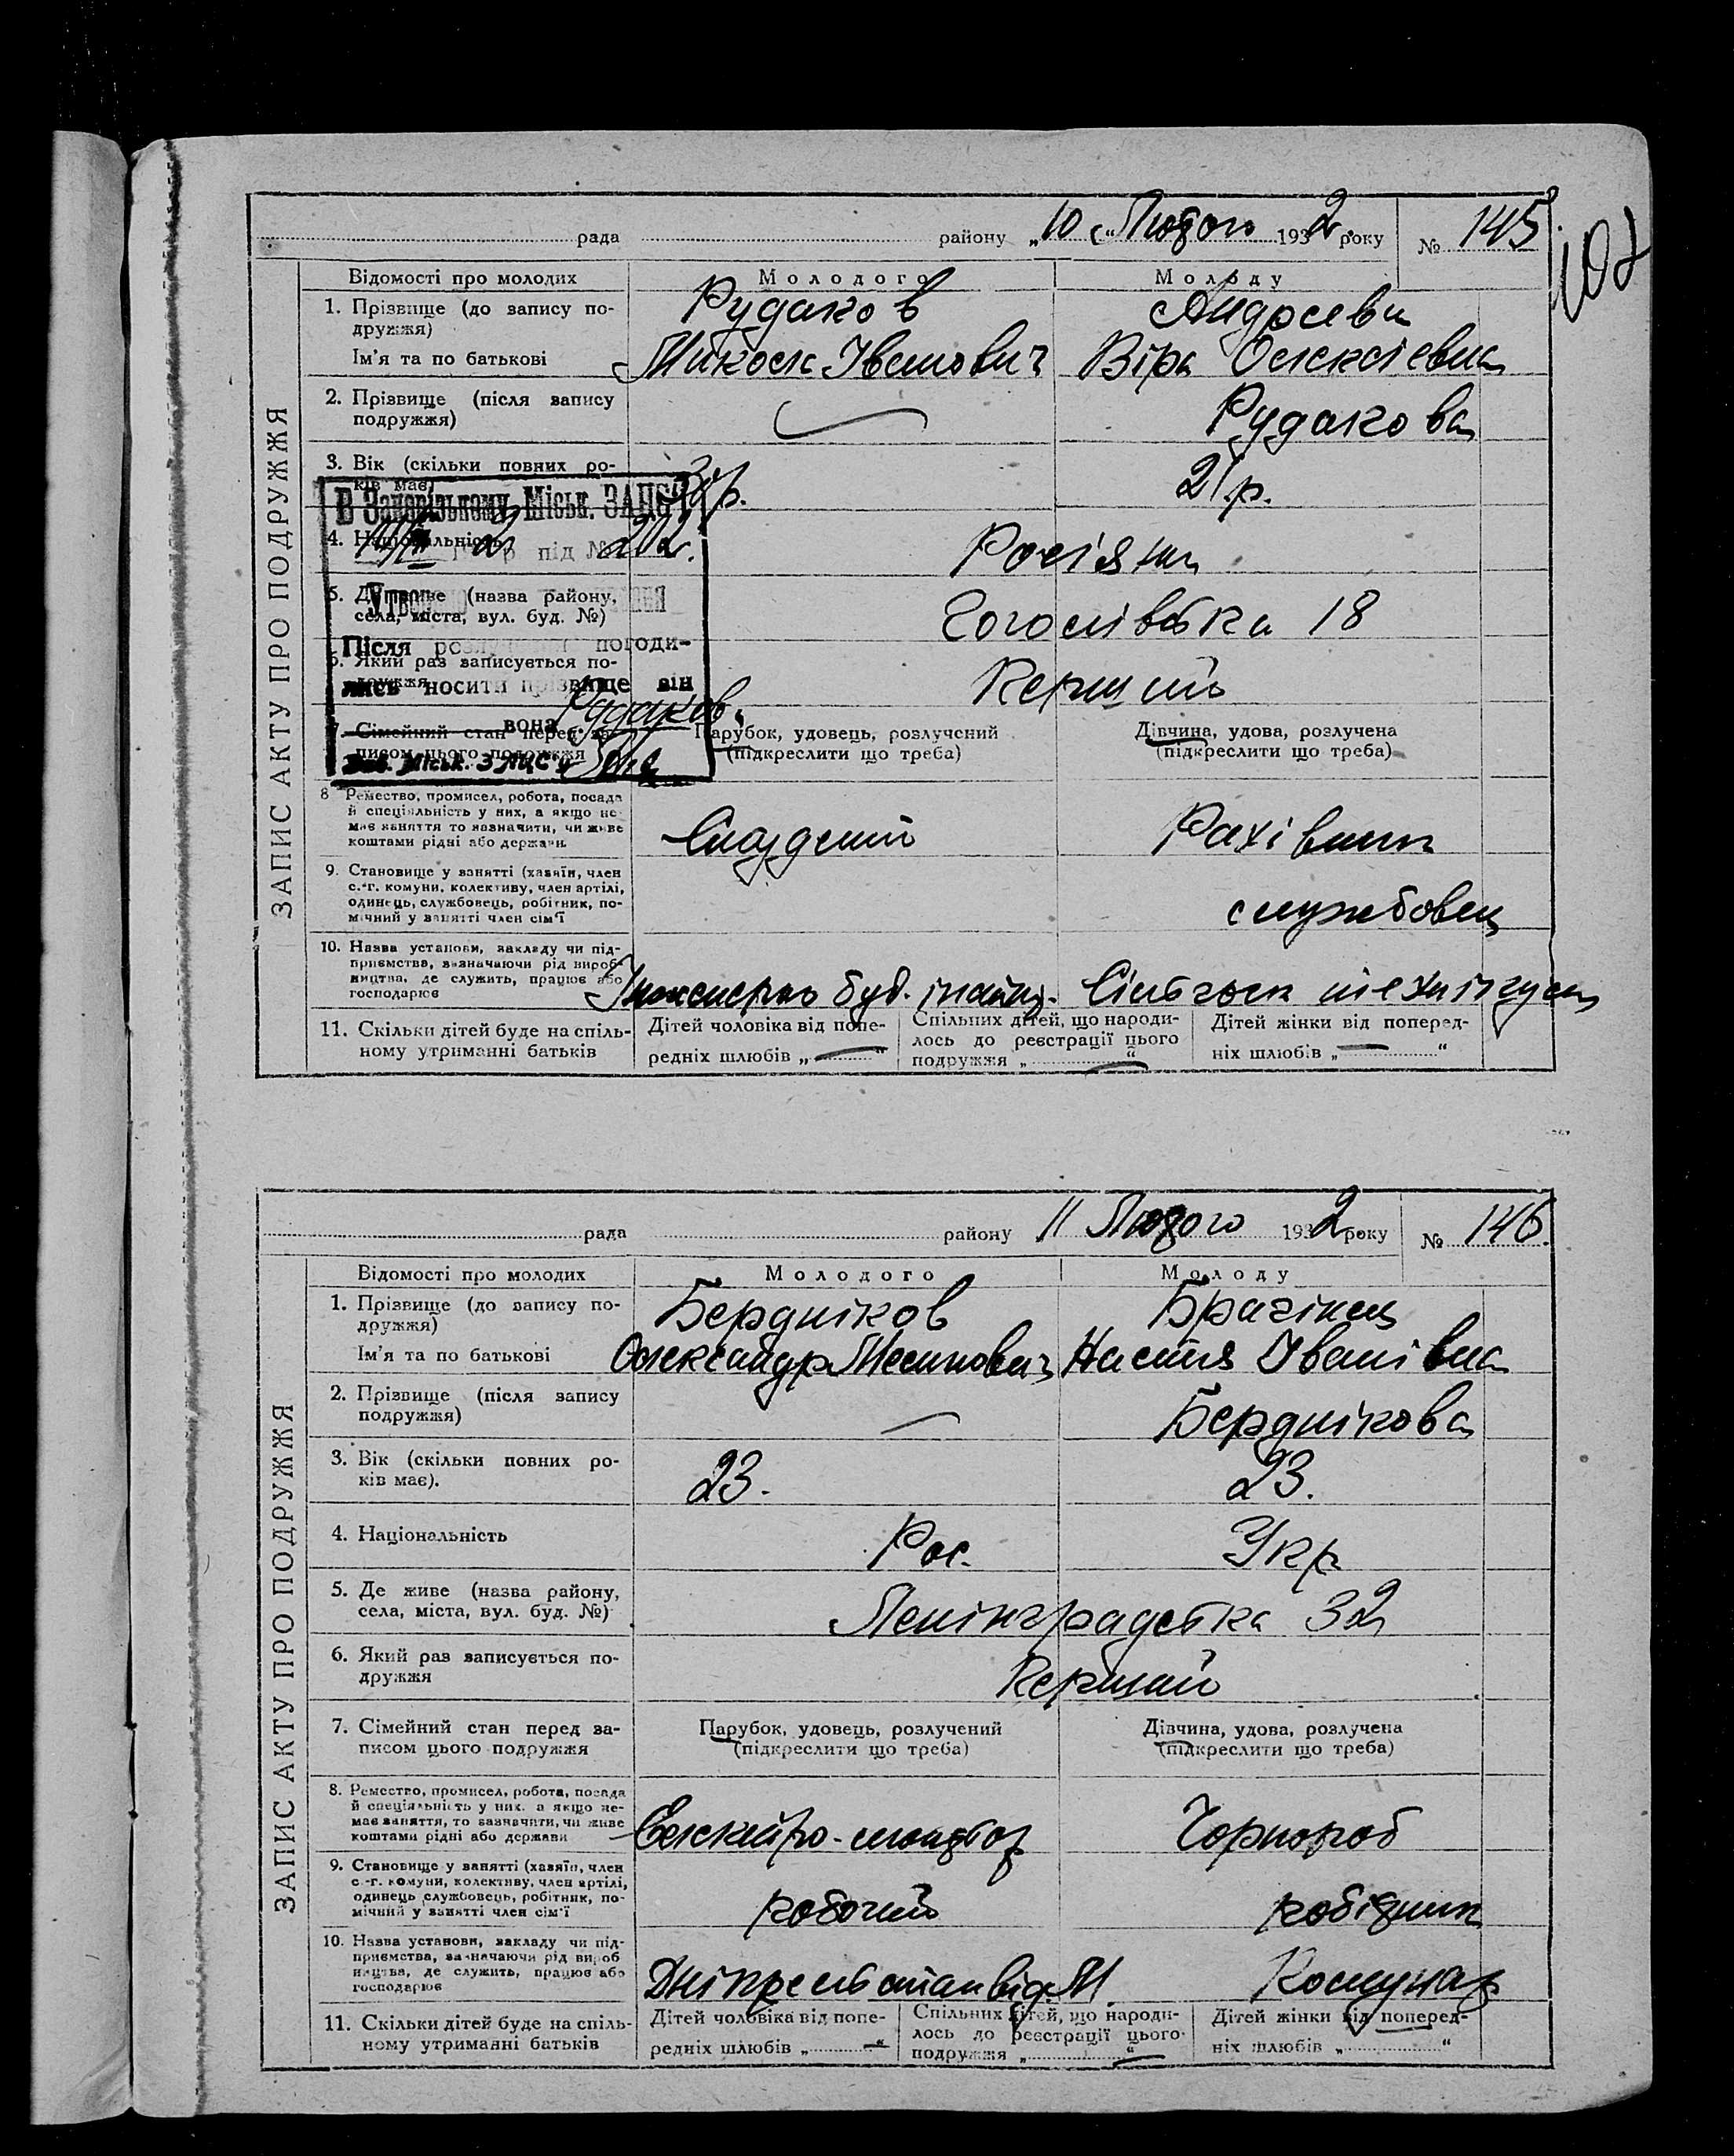 107
рада району „10“ Лютого 1932 року № 145
ЗАПИС АКТУ ПРО ПОДРУЖЖЯ
Відомості про молодих Молодого Молоду
1. Прізвище (до запису по-
дружжя) Рудаков Андреева
Ім'я та по батькові Микола Іванович Віра Олексіевна
2. Прізвище (після запису
подружжя) Рудакова
3. Вік (скільки повних ро-
ків має) р. 21.р.
В Запорізькому Міськ. ЗАПС
4. Національність Росіяни
під № 202.
5. Де живе (назва району,
села, міста, вул. буд. №) Гоголівська 18
Після погоди-
6. Який раз записується по-
дружжя Перший
лись носити прізвище він
Рудаков,
вона
7. Сімейний стан перед за-
писом цього подружжя
Парубок, удовець, розлучений
(підкреслити що треба)
Дівчина, удова, розлучена
(підкреслити що треба)
Зав. Міськ. ЗАПС'у
8 Ремество, промисел, робота, посада
й спеціяльність у них, а якщо не
має заняття то зазначити, чи живе
коштами рідні або держави
Рахівник
9. Становище у занятті (хазяїн, член
с.-г. комуни, колективу, член артілі,
одинець, службовець, робітник, по-
мічний у занятті член сім'ї
службовец
10. Назва установи, закладу чи під-
приємства, зазначаючи рід вироб-
ництва, де служить, працює або
господарює
буд.
11. Скільки дітей буде на спіль-
ному утриманні батьків
Дітей чоловіка від попе-
редніх шлюбів „ — “
Спільних дітей, що народи-
лось до реєстрації цього
подружжя „ — “
Дітей жінки від поперед-
ніх шлюбів „ — “
рада району 11 Лютого 1932 року № 146.
ЗАПИС АКТУ ПРО ПОДРУЖЖЯ
Відомості про молодих Молодого Молоду
1. Прізвище (до запису по-
дружжя) Бердніков Брагінец
Ім'я та по батькові Олександр Настя Іванівна
2. Прізвище (після запису
подружжя) — Берднікова
3. Вік (скільки повних ро-
ків має). 23. 23.
4. Національність Рос. Укр
5. Де живе (назва району,
села, міста, вул. буд. №) Ленінградська 32
6. Який раз записується по-
дружжя Перший
7. Сімейний стан перед за-
писом цього подружжя
Парубок, удовець, розлучений
(підкреслити що треба)
Дівчина, удова, розлучена
(підкреслити що треба)
8. Ремество, промисел, робота, посада
й спеціяльність у них, а якщо не-
має заняття, то зазначити, чи живе
коштами рідні або держави
Електро-монтор Чорнороб
9. Становище у занятті (хазяїн, член
с.-г. комуни, колективу, член артілі,
одинець службовець, робітник, по-
мічний у занятті член сім'ї
робочий робідник
10. Назва установи, закладу чи під-
приємства, зазначаючи рід вироб
ництва, де служить, працює або
господарює
Комунар
11. Скільки дітей буде на спіль-
ному утриманні батьків
Дітей чоловіка від попе-
редніх шлюбів „ — “
Спільних дітей, що народи-
лось до реєстрації цього
подружжя „ — “
Дітей жінки від поперед-
ніх шлюбів „ “